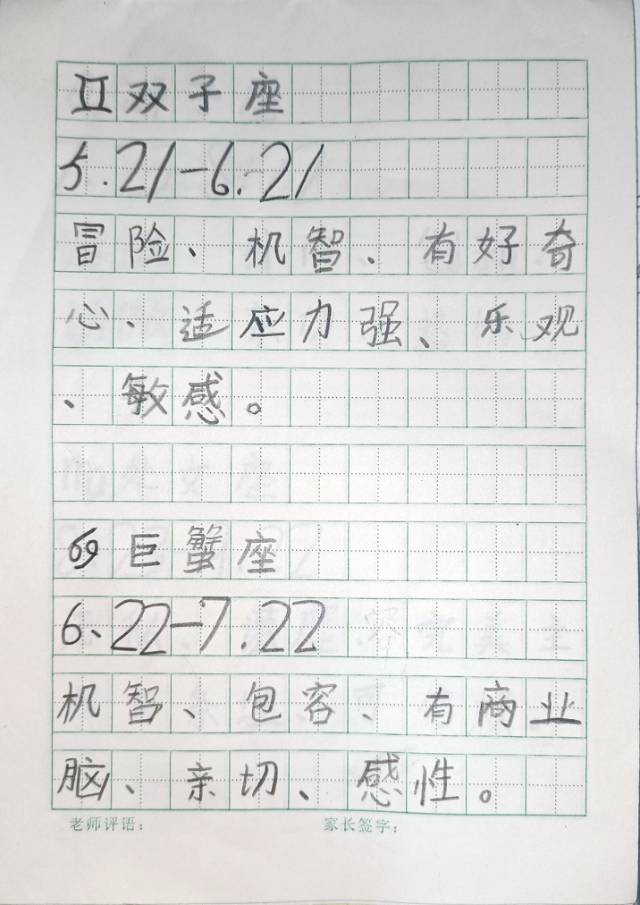 ♊双子座
5.21-6.21
冒险、机智、有好奇
心、适应力强、乐观
、敏感。
♋巨蟹座
6、22-7.22
机智、包容、有商业
脑、亲切、感性。
老师评语: 家长签字: